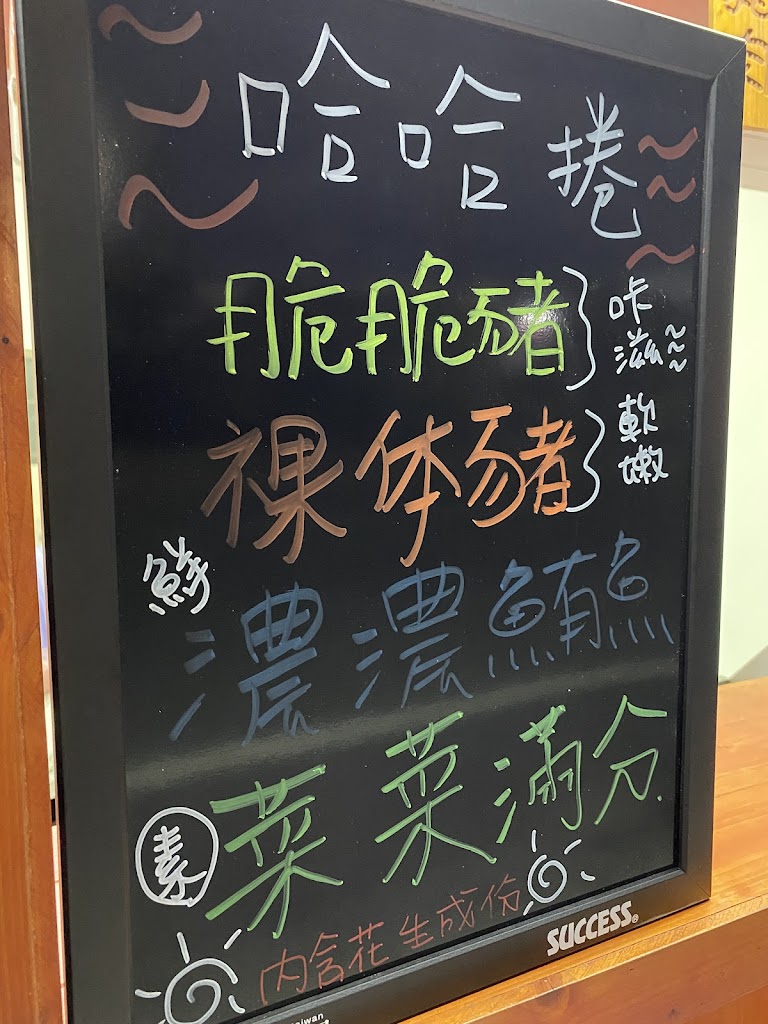 哈哈捲
脆脆豬 咔滋~~~
裸体豬 軟嫩
鮮 濃濃鮪魚
素 菜菜滿分
內含花生成份
SUCCESS®